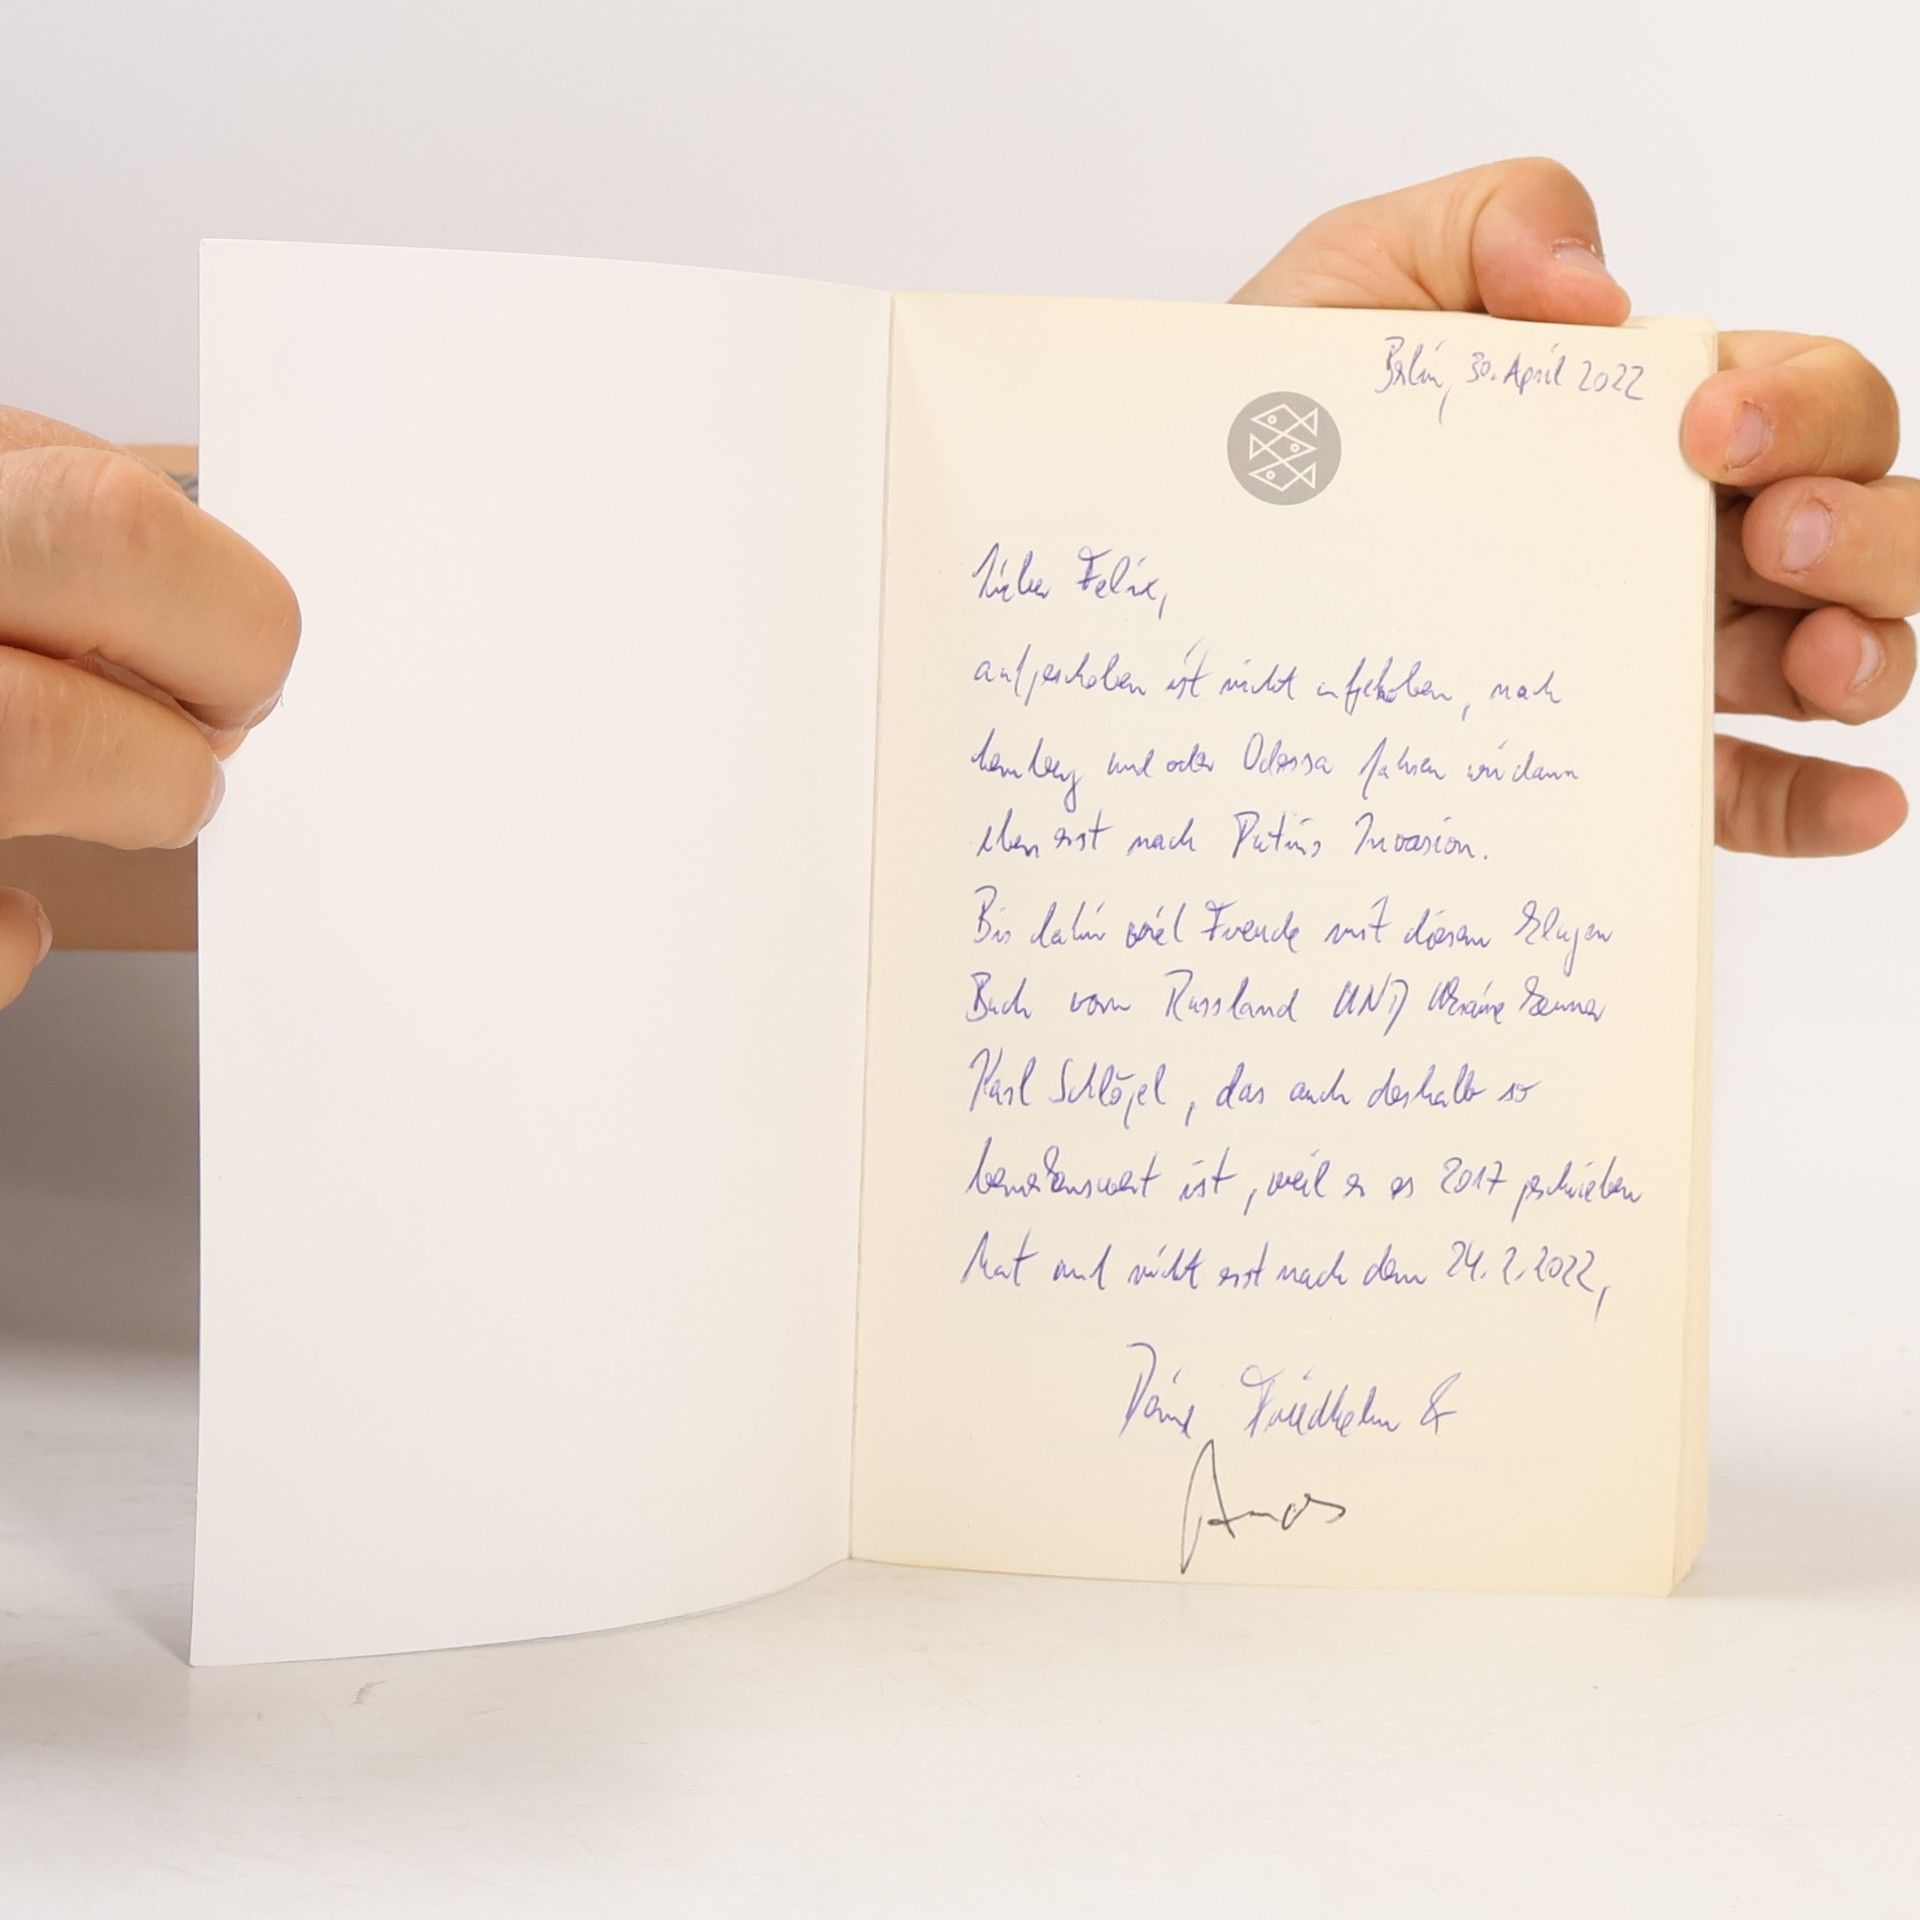 Berlin, 30. April 2022
Lieber Felix,
aufgeschoben ist nicht aufgehoben, nach
Lemberg und oder Odessa fahren wir dann
eben erst nach Putins Invasion.
Bis dahin viel Freude mit diesem klugen
Buch vom Russland UND Ukraine Kenner
Karl Schlögel, das auch deshalb so
bemerkenswert ist, weil er es 2017 geschrieben
hat und nicht erst nach dem 24.2.2022,
Deine Friedhelm &
Amos